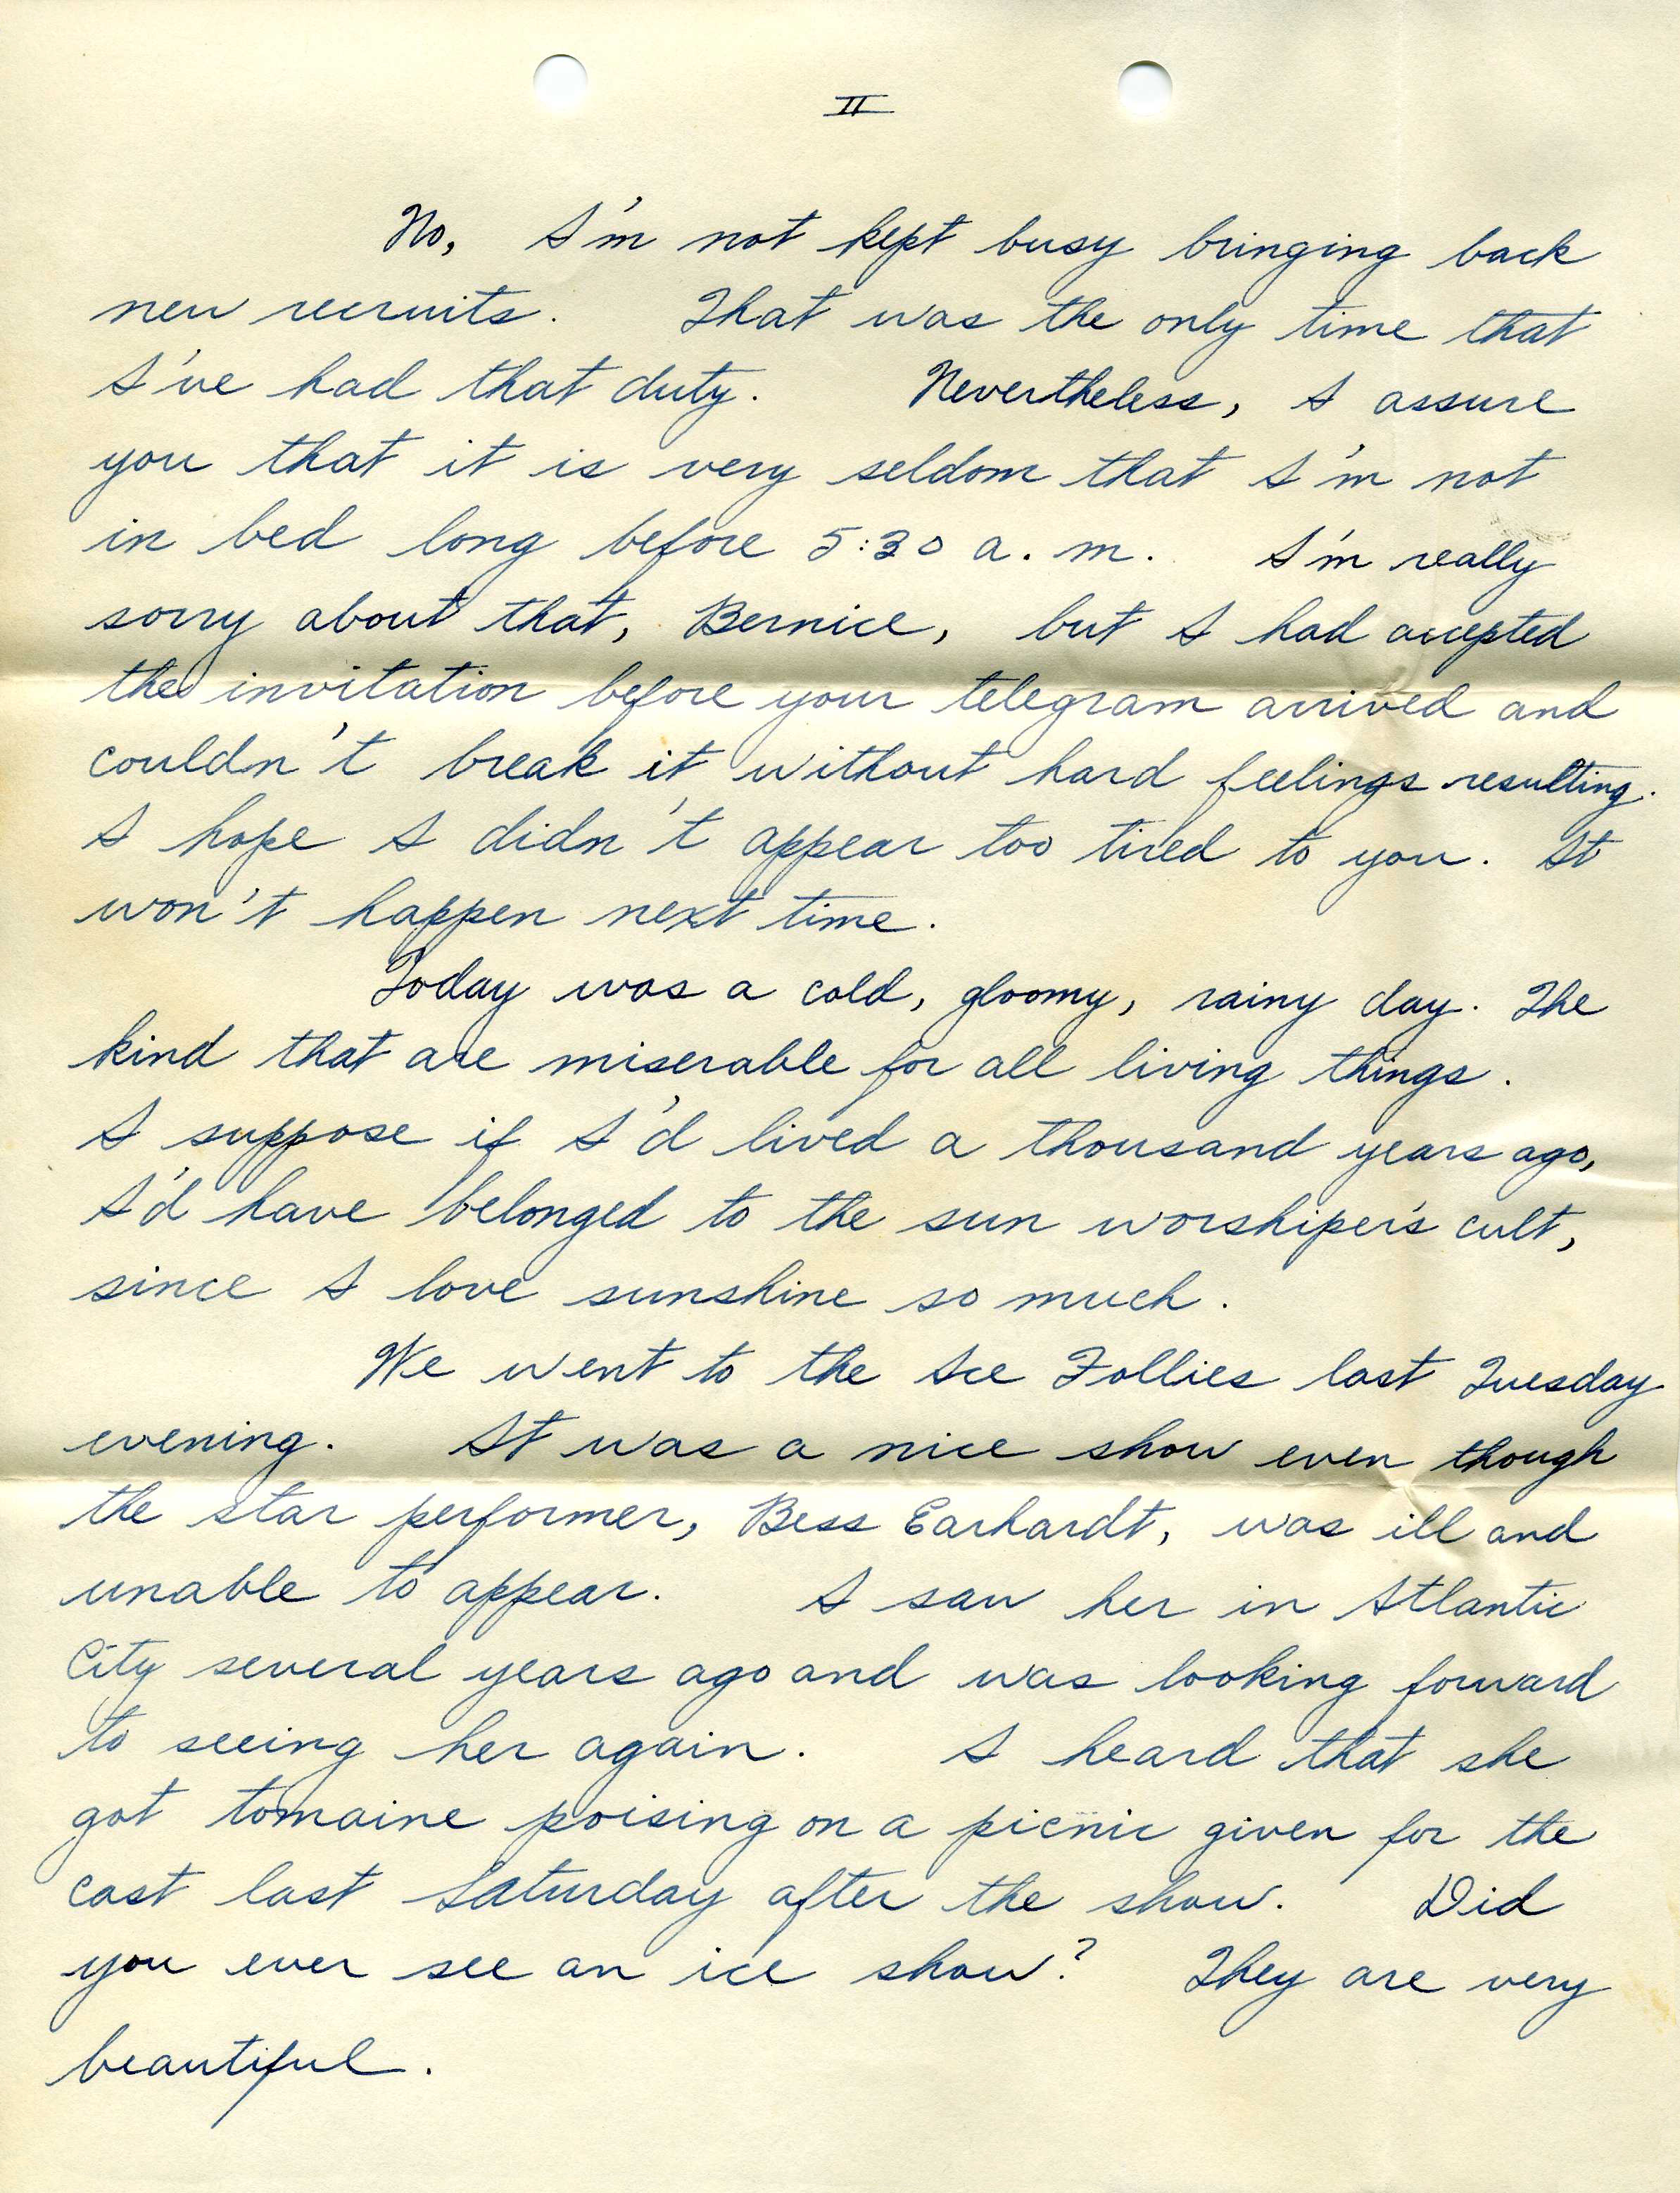 II
No, I'm not kept busy bringing back
new recruits. That was the only time that
I've had that duty. Nevertheless, I assure
you that it is very seldom that I'm not
in bed long before 5:30 a.m. I'm really
sorry about that, Bernice, but I had accepted
the invitation before your telegram arrived and
couldn't break it without hard feelings resulting.
I hope I didn't appear too tired to you. It
won't happen next time.
Today was a cold, gloomy, rainy day. The
kind that are miserable for all living things.
I suppose if I'd lived a thousand years ago,
I'd have belonged to the sun worshiper's cult,
since I love sunshine so much.
We went to the Ice Follies last Tuesday
evening. It was a nice show even though
the star performer, Bess Earhardt, was ill and
unable to appear. I saw her in Atlantic
City several years ago and was looking forward
to seeing her again. I heard that she
got tomaine poising on a picnic given for the
cast last Saturday after the show. Did
you ever see an ice show? They are very
beautiful.